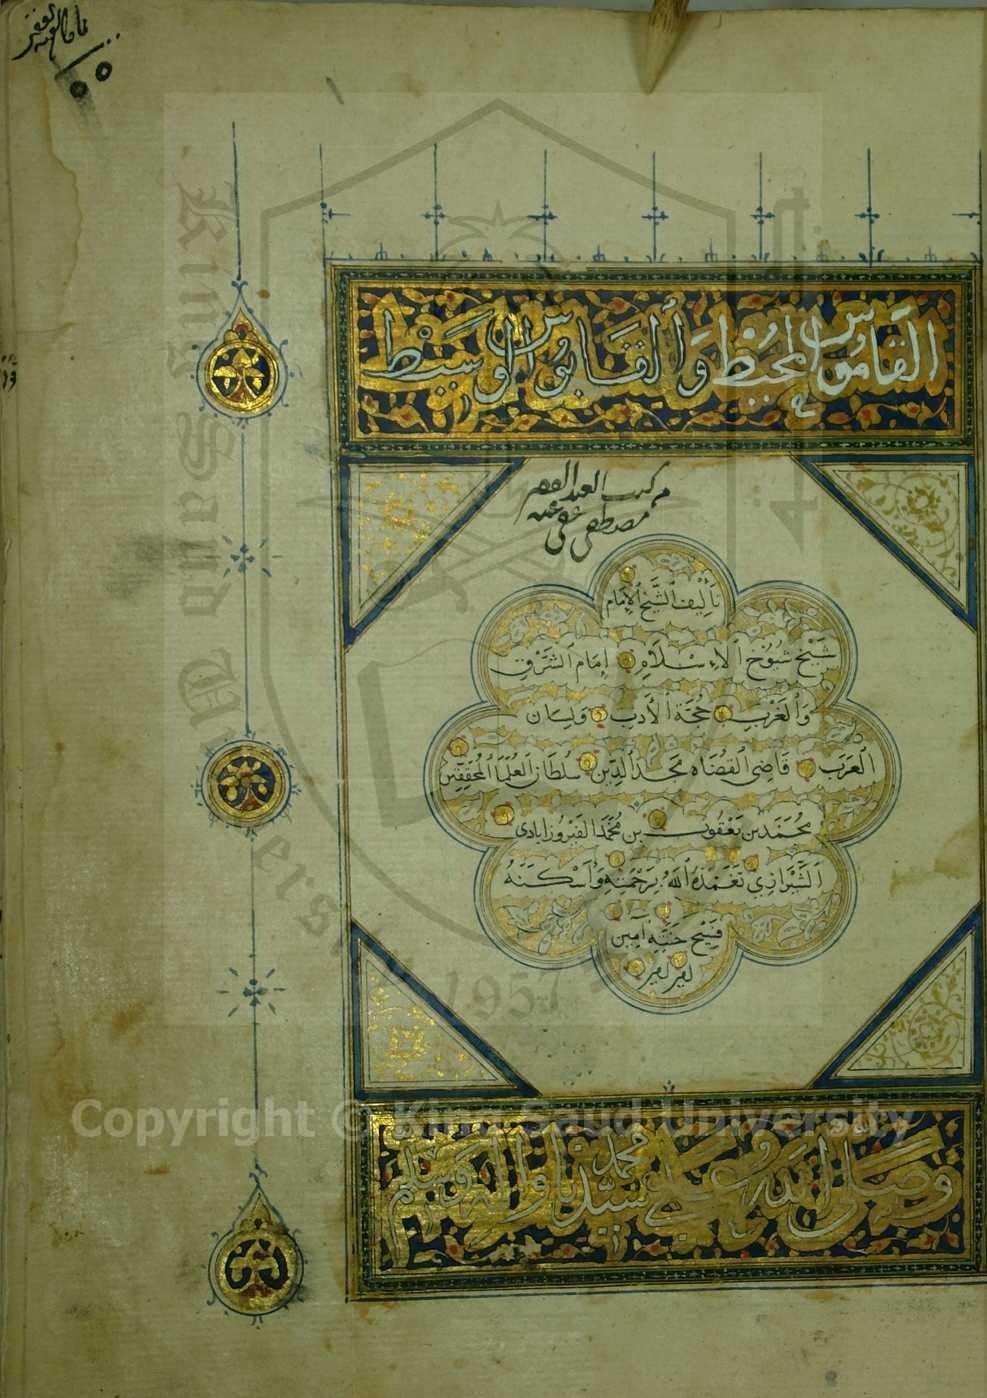 القاموس المحيط والقاموس الوسيط
من كتب العبد الفقير
مصطفى عفي عنه
تأليف الشيخ الإمام
شيخ شيوخ الإسلام إمام الشرق
والغرب حجة الأدب ولسان
العرب قاضي القضاة مجد الدين سلطان العلما المحققين
محمد بن يعقوب بن محمد الفيروزابادي
الشيرازي تغمده الله برحمته وأسكنه
فسيح جنته آمين
وصلى الله على سيدنا محمد وآله وسلم
King Saud University
1957
Copyright © King Saud University